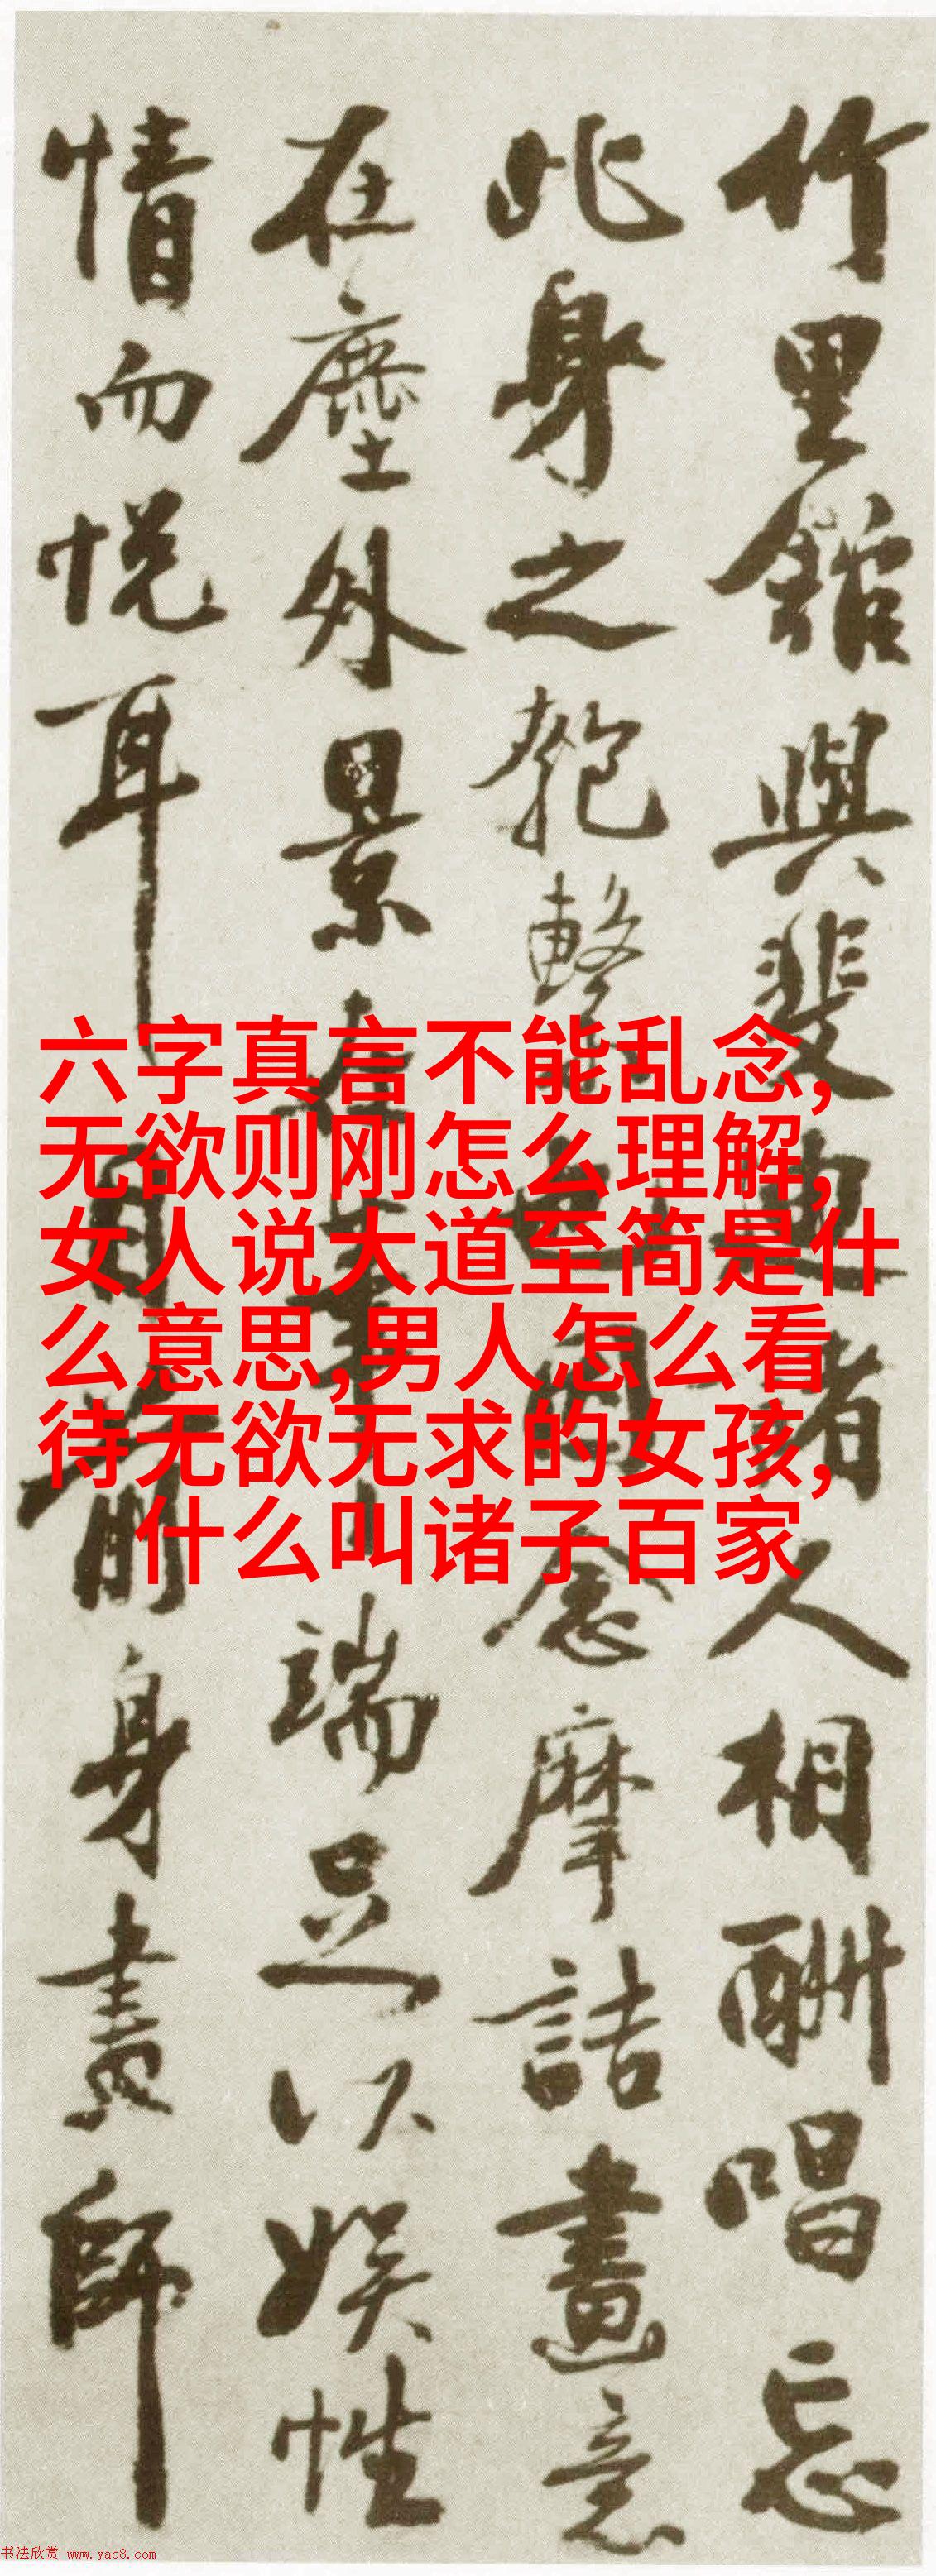 竹里館與裴迪諸人相酬唱忘
此身之匏繫也因念摩詰畫意
在塵外景在筆端足以娛性
情而悅耳目前身畫師
六字真言不能乱念,
无欲则刚怎么理解,
女人说大道至简是什
么意思,男人怎么看
待无欲无求的女孩,
什么叫诸子百家
书法欣赏 www.yac8.com